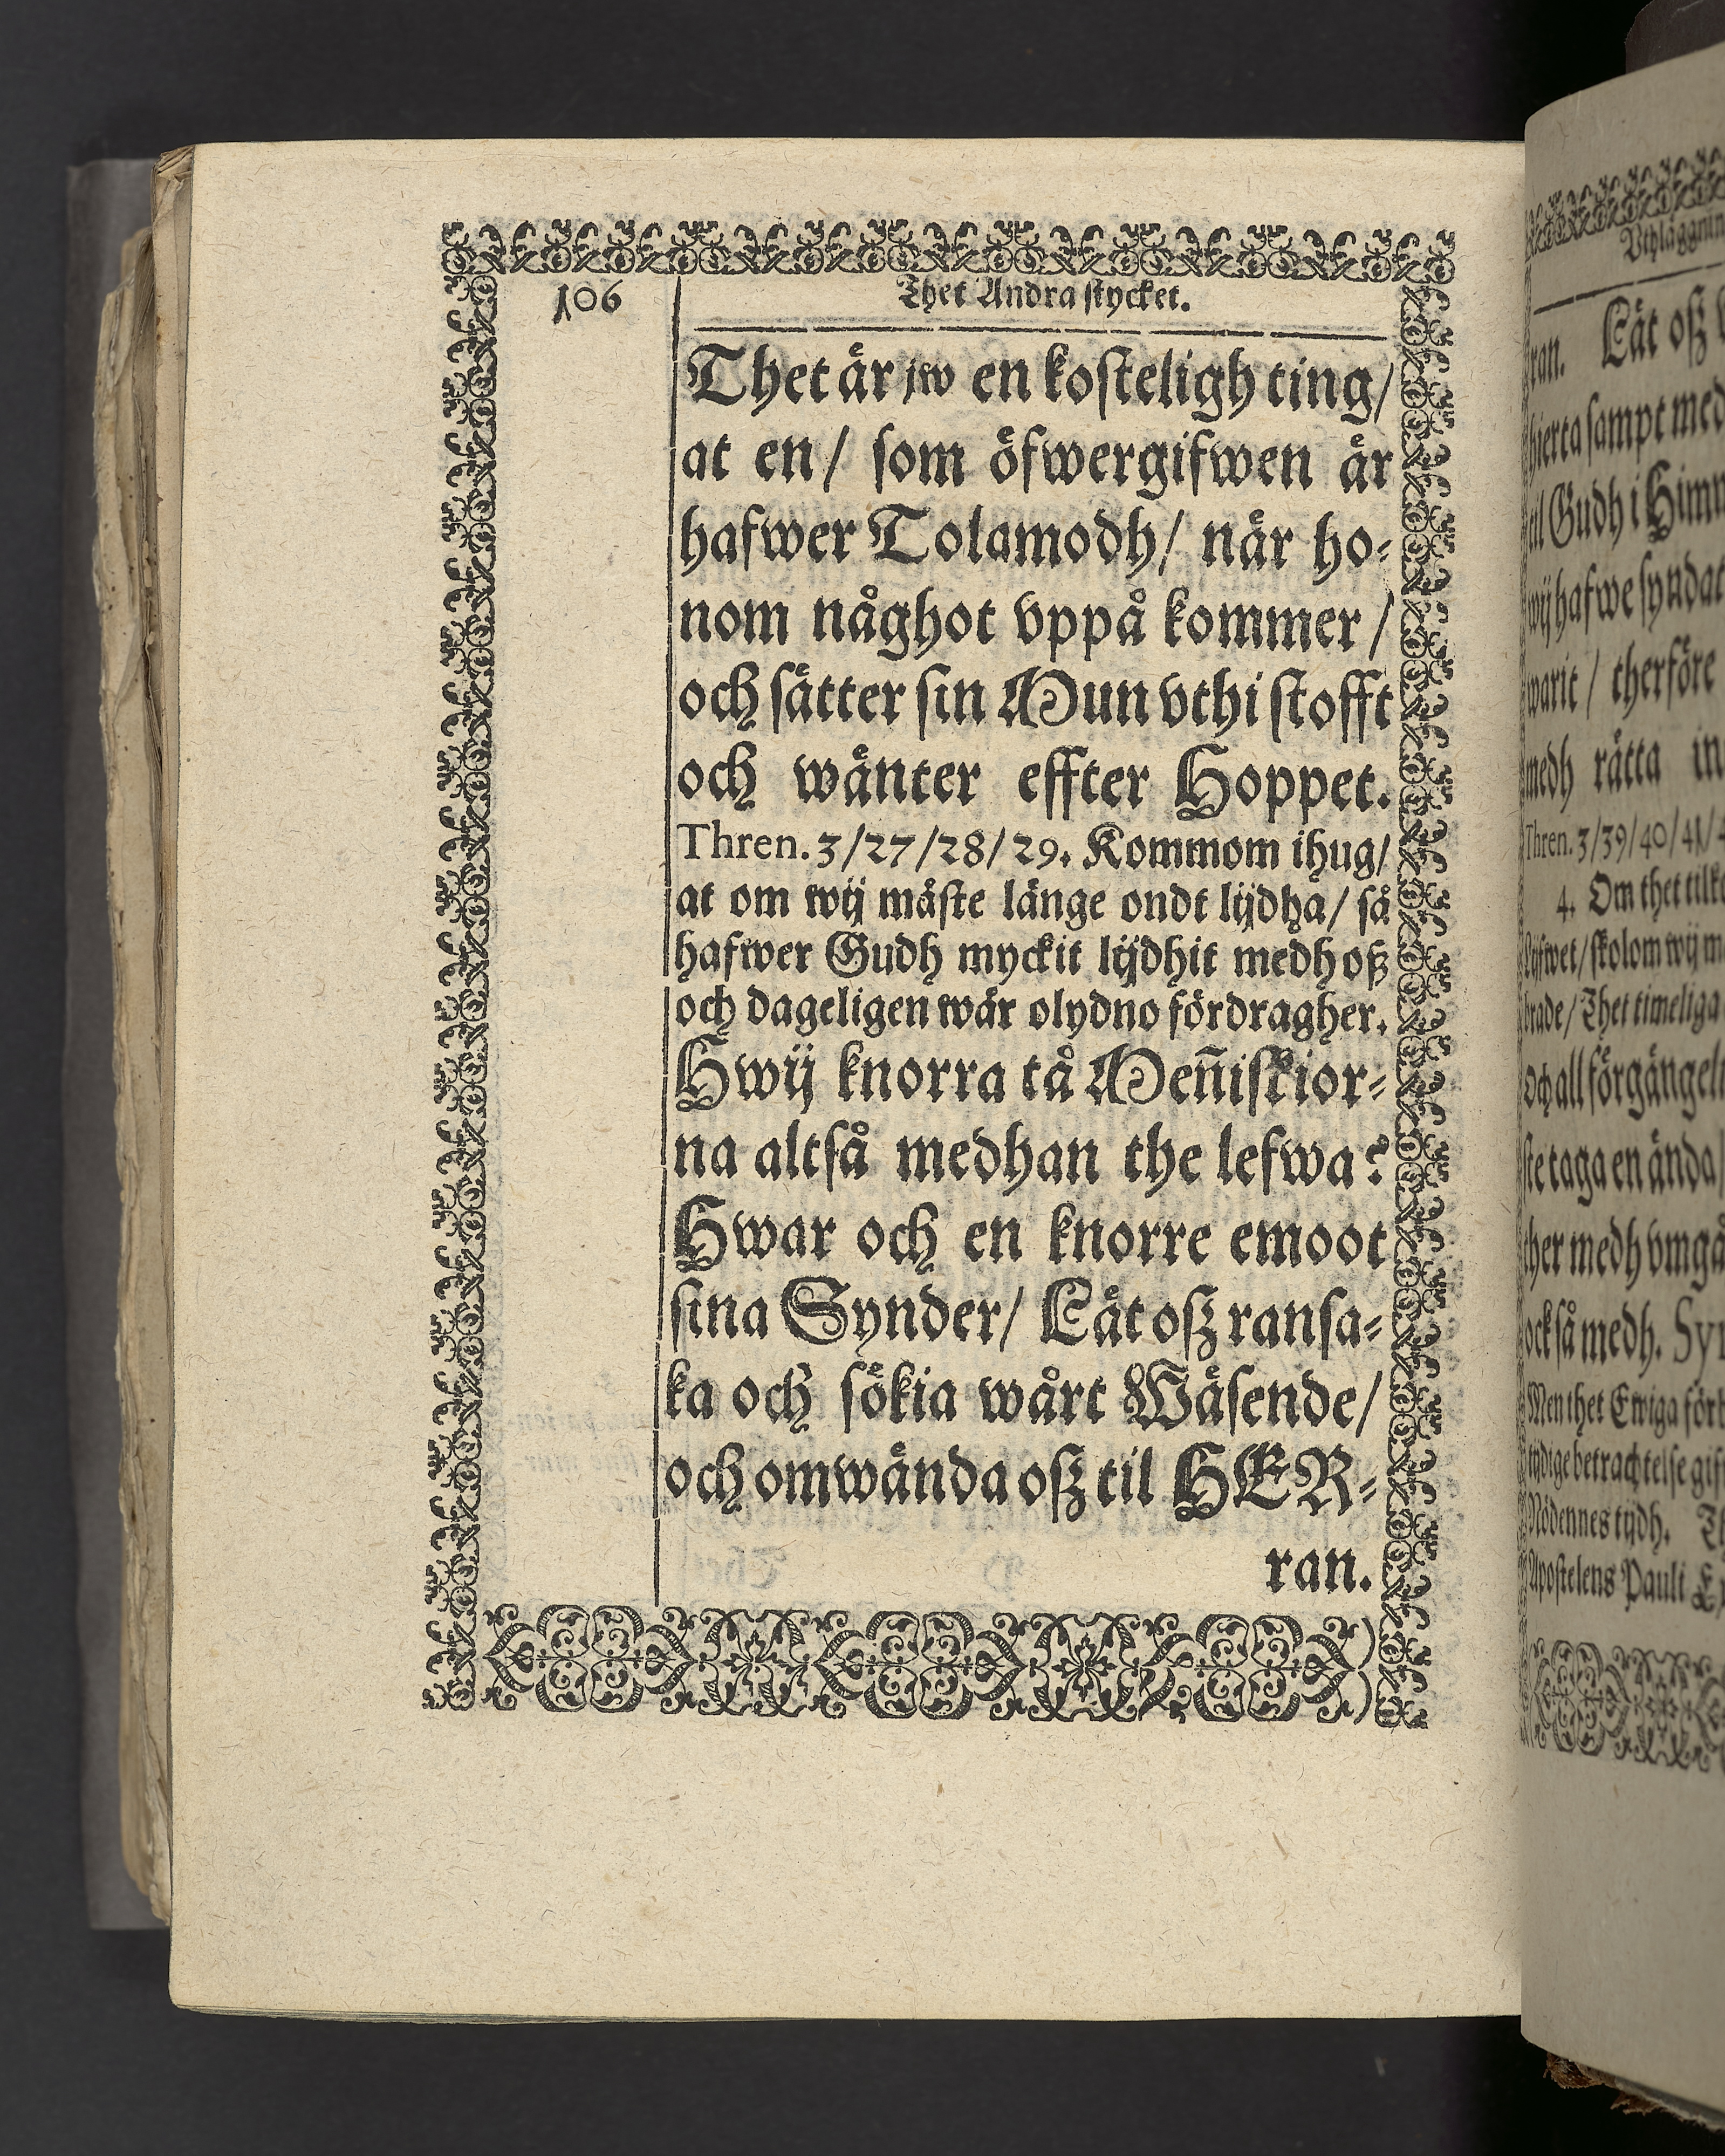 106
Thet Andra stycket.
Thet är jw en kosteligh ting/
at en/ som öfwergifwen är
hafwer Tolamodh/ när ho-
nom någhot vppå kommer /
och sätter sin Mun vthi stofft
och wänter effter Hoppet.
Thren. 3/27/28/29. Kommom ihug/
at om wij måste länge ondt lijdha/ så
hafwer Gudh myckit lijdhit medh oß
och dageligen wår olydno fördragher.
Hwij knorra tå Meñiskior-
na altså medhan the lefwa?
Hwar och en knorre emoot
sina Synder/ Låt oß ransa-
ka och sökia wårt Wäsende/
och omwända oß til HER-
ran.
Vthläggnin
ran. Låt oß
hierta sampt med
til Gudh i Him
wij hafwe syndat
warit / therföre
medh rätta in
Thren. 3/39/40/41/
4. Om thet
lijfwet/ skolom wij
brade/ Thet timeliga
Och all
ste taga en ända/
ther medh vmgå
ock så medh.
Men thet Ewiga
betrachtelse
Nödennes tijdh.
Apostelens Pauli